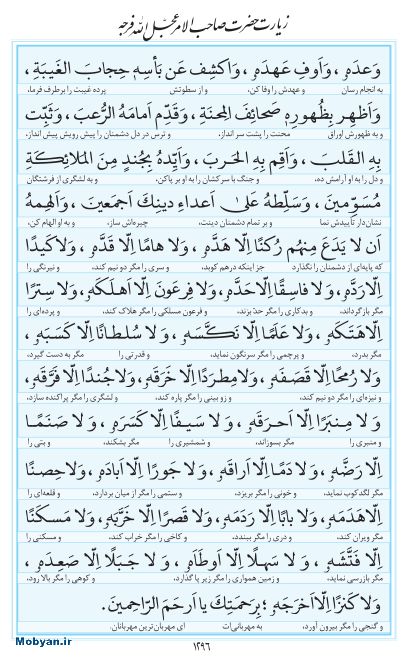 زیارت حضرت صاحب الامر عجل الله فرجه
وَعدَهُ ، وَاَوفِ عَهدَهُ ، وَاكشِف عَن بَأسِهِ حِجابَ الغَيبَةِ ،
به انجام رسان و عهدش را وفا کن، و از سطوتش پرده غیبت را برطرف فرما،
وَاَظهِر بِظُهورِهِ صَحائِفَ المِحنَةِ ، وَقَدِّم اَمامَهُ الرُّعبَ ، وَثَبِّت
و به ظهورش اوراق محنت را پشت سر انداز، و ترس در دل دشمنان را پیش رویش پیش انداز،
بِهِ القَلبَ ، وَاَقِم بِهِ الحَربَ ، وَاَيِّدهُ بِجُندٍ مِنَ المَلائِكَةِ
و دل را به او آرامش ده، و جنگ با سرکشان را به او بر پا کن، و به لشگری از فرشتگان
مُسَوِّمينَ ، وَسَلِّطهُ عَلىٰ اَعداءِ دينِكَ اَجمَعينَ ، وَاَلهِمهُ
نشان‌دار تأییدش نما و بر تمام دشمنان دینت، چیره‌اش ساز، و به او الهام کن،
اَن لا يَدَعَ مِنهُم رُكنًا اِلّا هَدَّهُ ، وَلا هامًا اِلّا قَدَّهُ ، وَلا كَيدًا
که پایه‌ای از دشمنان را نگذارد جز اینکه درهم کوبد، و سری را مگر دو نیم کند، و نیرنگی را
اِلّا رَدَّهُ ، وَلا فاسِقًا اِلّا حَدَّهُ ، وَلا فِرعَونَ اِلّا اَهلَكَهُ ، وَلا سِترًا
مگر بازگرداند، و بدکاری را مگر حدّ بزند، و فرعون مسلکی را مگر هلاک کند، و پرده‌ای را
اِلّا هَتَكَهُ ، وَلا عَلَمًا اِلّا نَكَّسَهُ ، وَلا سُلطانًا اِلّا كَسَبَهُ ،
مگر بدرد، و پرچمی را مگر سرنگون نماید، و قدرتی را مگر به دست گیرد،
وَلا رُمحًا اِلّا قَصَفَهُ ، وَلا مِطرَدًا اِلّا خَرَقَهُ ، وَلا جُندًا اِلّا فَرَّقَهُ ،
و نیزه‌ای را مگر دو نیم کند، و زوبینی را مگر پاره کند، و لشگری را مگر پراکنده سازد،
وَلا مِنبَرًا اِلّا اَحرَقَهُ ، وَلا سَيفًا اِلّا كَسَرَهُ ، وَلا صَنَمًا
و منبری را مگر بسوزاند، و شمشیری را مگر بشکند، و بتی را
اِلّا رَضَّهُ ، وَلا دَمًا اِلّا اَراقَهُ ، وَلا جَورًا اِلّا اَبادَهُ ، وَلا حِصنًا
مگر لگدکوب نماید، و خونی را مگر بریزد، و ستمی را مگر از میان بردارد، و قلعه‌ای را
اِلّا هَدَمَهُ ، وَلا بابًا اِلّا رَدَمَهُ ، وَلا قَصرًا اِلّا خَرَّبَهُ ، وَلا مَسكَنًا
مگر ویران کند، و دری را مگر ببندد، و کاخی را مگر خراب کند، و مسکنی را
اِلّا فَتَّشَهُ ، وَلا سَهلًا اِلّا اَوطَاَهُ ، وَلا جَبَلًا اِلّا صَعِدَهُ ،
مگر بازرسی نماید، و زمین همواری را مگر زیر پا گذارد، و کوهی را مگر بالا رود،
وَلا كَنزًا اِلّا اَخرَجَهُ ؛ بِرَحمَتِكَ يا اَرحَمَ الرّاحِمينَ.
و گنجی را مگر بیرون آورد، به مهربانی‌ات ای مهربان‌ترین مهربانان.
۱۲۹۶
Mobyan.ir